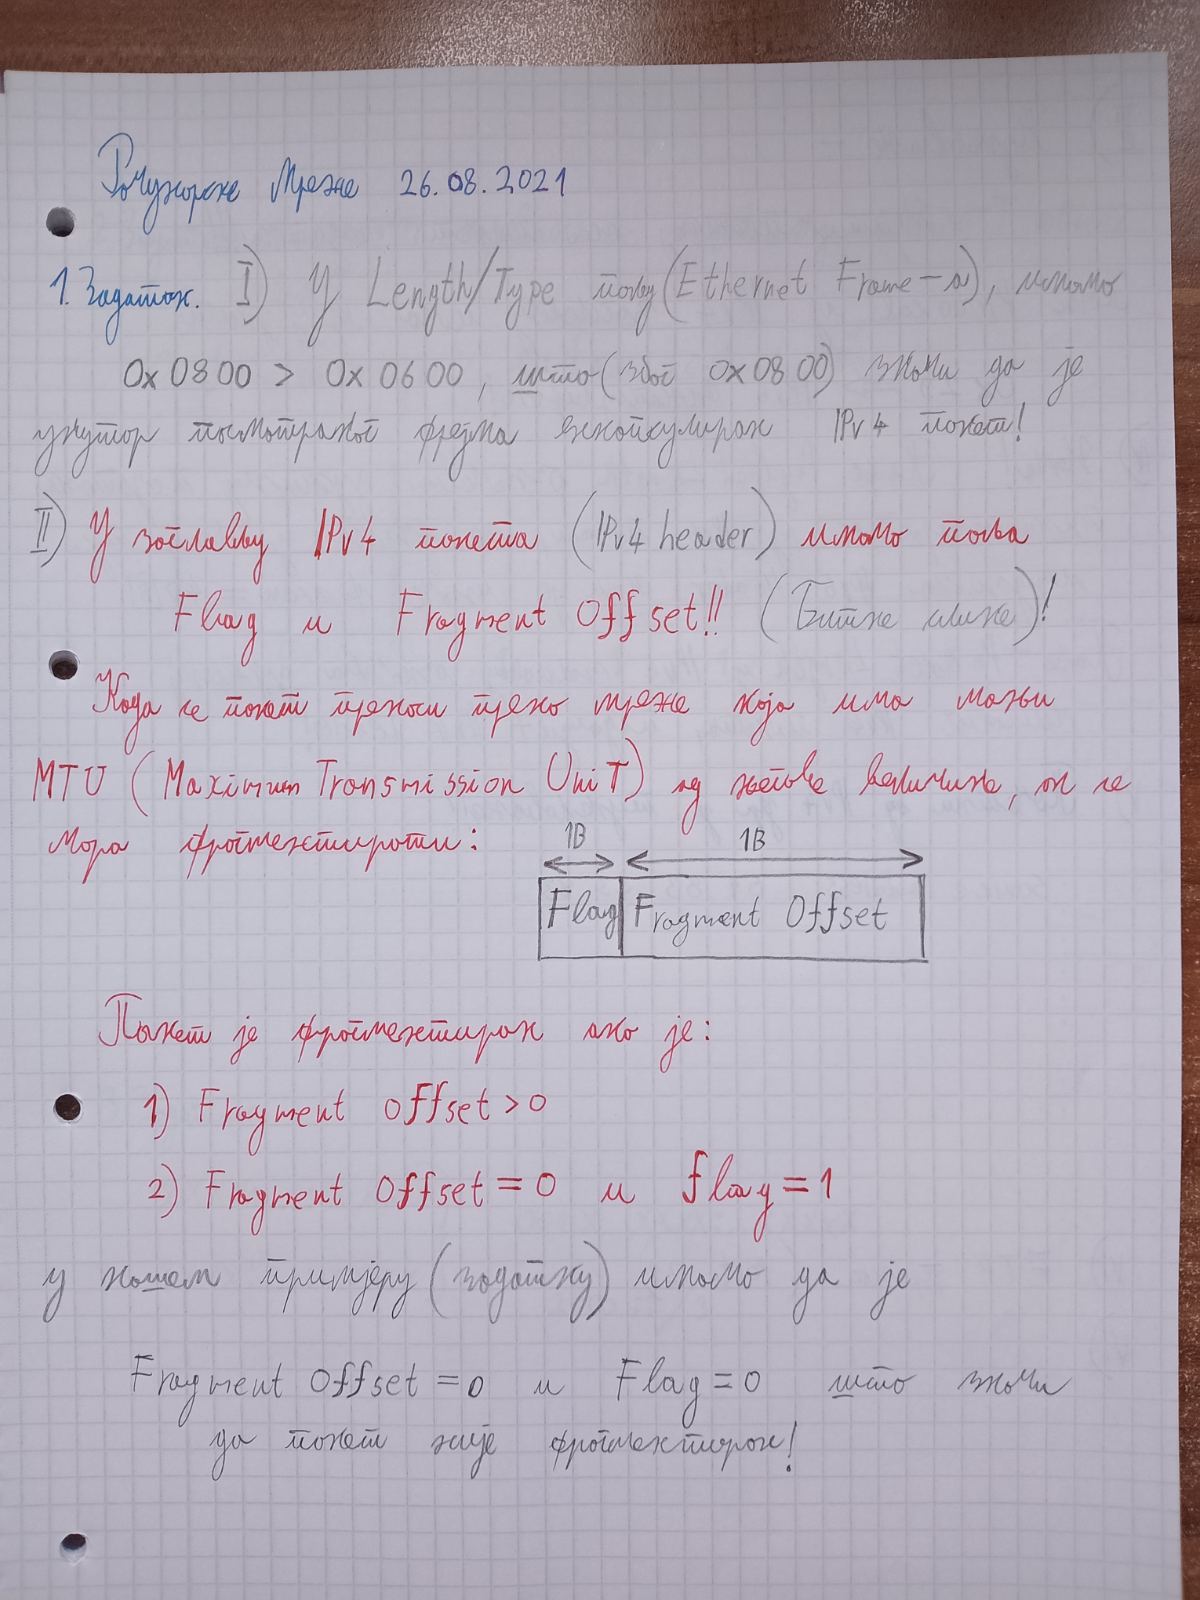 Рачунарске Мреже 26.08.2021
1. Задатак. I) У Length/Type пољу (Ethernet Frame-а), имамо
0x0800 > 0x0600, што (због 0x0800) значи да је
унутар посматраног фрејма енкапсулиран IPv4 пакет!
II) У заглављу IPv4 пакета (IPv4 header) имамо поља
Flag и Fragment Offset!! (Битне ствари)!
Када се пакет преноси преко мреже која има мањи
MTU (Maximum Transmission UniT) од његове величине, он се
мора фрагментирати:
1B 1B
Flag Fragment Offset
Пакет је фрагментиран ако је:
1) Fragment offset > 0
2) Fragment Offset = 0 и flag = 1
у нашем примјеру (задатку) имамо да је
Fragment Offset = 0 и Flag = 0 што значи
да пакет није фрагментиран!